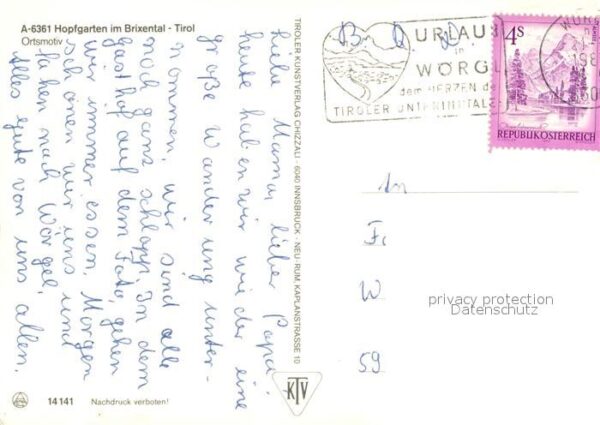 A-6361 Hopfgarten im Brixental - Tirol
Ortsmotiv
Liebe Mama, lieber Papa!
heute haben wir wieder eine
große Wanderung unter-
nommen. Wir sind alle
noch ganz schlapp. In dem
Gasthof auf dem Foto, gehen
wir immer essen. Morgen
schonen wir uns und
fahren nach Wörgl.
Alles gute von uns allen.
14141 Nachdruck verboten!
TIROLER KUNSTVERLAG CHIZZALI · 6040 INNSBRUCK - NEU-RUM, KAPLANSTRASSE 10
KTV
URLAUB
in
WÖRGL
dem HERZEN de
TIROLER UNTERINNTALS
4S
REPUBLIK ÖSTERREICH
An
F
W
59
privacy protection
Datenschutz